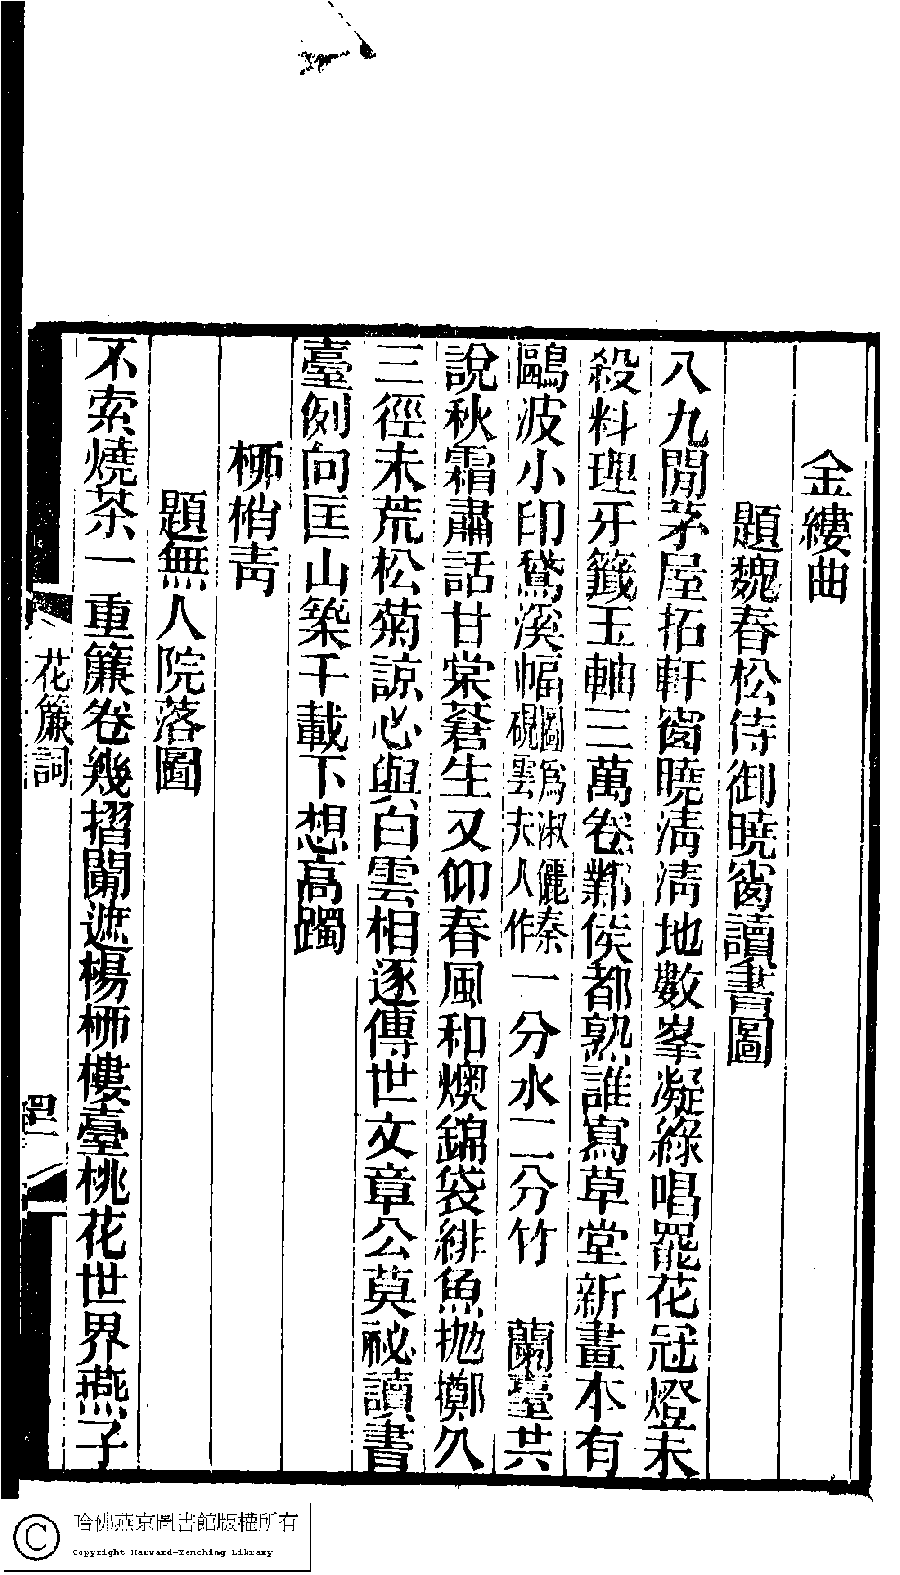 金縷曲
題魏春松侍御曉窗讀書圖
八九閒茅屋拓軒窗曉淸淸地數峯凝綠唱罷花冠燈未
殺料理牙籤玉軸三萬卷鄴侯都熟誰寫草堂新畫本有
鷗波小印鵞溪幅圖爲淑儷秦硯雲夫人作一分水二分竹　蘭臺共
說秋霜肅話甘棠蒼生又仰春風和燠錦袋緋魚抛擲久
三徑未荒松菊諒心與白雲相逐傳世文章公莫祕讀書
臺例向匡山築千載下想高躅
柳梢靑
題無人院落圖
不索燒茶一重簾卷幾摺闌遮楊柳樓臺桃花世界燕子
花簾詞
哈佛燕京圖書館版權所有
Copyright Harvard-Yenching Library